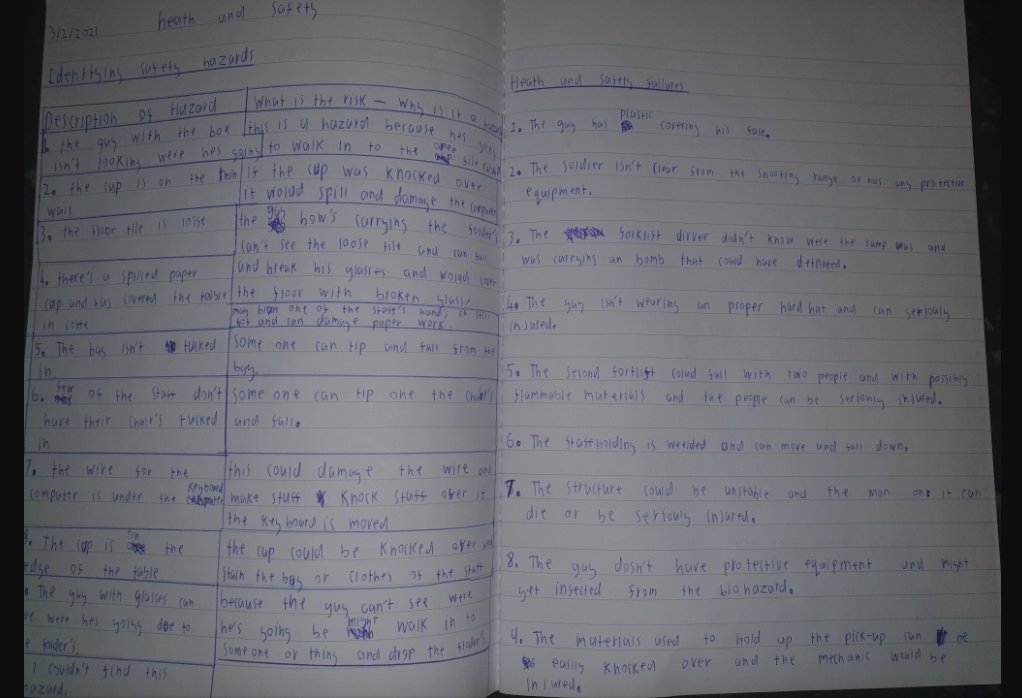 3/2/2021
heath and safety
Identfying safety hazards
Description of Hazard
What is the risk — Why is it a
1. the guy with the box
isn't looking were hes going
this is a hazard because hes going
to walk in to the open file
2. the cup is on the thin
wall
if the cup was knocked over
it wolud spill and damage the computer
3. the floor tile is losse
the guy how's carrying the folder's
can't see the loose tile and can fall
and break his glasses and wolud cover
the floor with broken glass
4. there's a spilled paper
cup and has covered the table
in coffe
may bran one of the staff's hand,
hot and can damage paper work.
5. The bag isn't tucked
in.
some one can tip and fall from the
bag.
6. few of the staff don't
have their chair's tucked
in
some one can tip one the chair's
and fall.
7. the wire for the
computer is under the keyboard
this could damage the wire and
make stuff knock stuff over if
the keyboard is moved
8. The cup is on the
edge of the table
the cup could be knocked over and
stain the bag or clothes of the staff
The guy with glasses can
were hes going due to
folder's.
because the guy can't see were
he's going be might walk in to
some one or thing and drop the
I couldn't find this
hazard.
Heath and safety failures
1. The guy has plastic covering his face.
2. The soldier isn't clear from the shooting range or has any protective
equipment.
3. The forklist dirver didn't know were the ramp was and
was carrying an bomb that could have detnated.
4. The guy isn't wearing an proper hard hat and can seriously
injured.
5. The second fortlift colud fall with two people and with possibly
flammable materials and the people can be seriously injured.
6. The staffholding is and can move and fall down.
7. The structure could be unstable and the man on it can
die or be seriously injured.
8. The guy dosn't have protective equipment and might
get infected from the biohazard.
9. The materials used to hold up the pick-up can be
easily knocked over and the mechanic would be
injured.